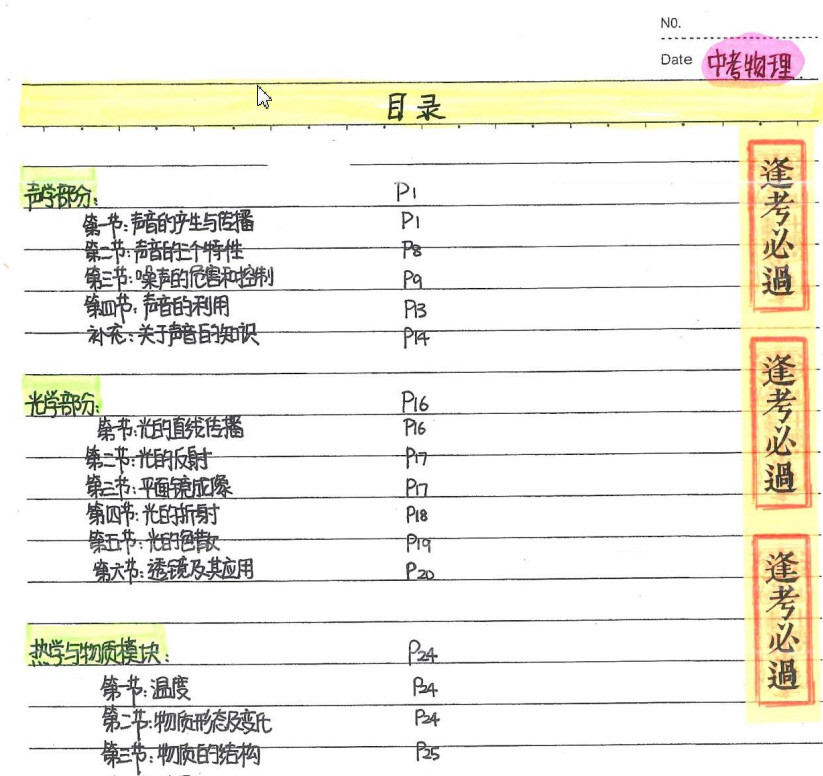 NO.
Date 中考物理
目录
声学部分: P1
第一节:声音的产生与传播 P1
第二节:声音的三个特性 P8
第三节:噪声的危害和控制 P9
第四节:声音的利用 P13
补充:关于声音的知识 P14
光学部分: P16
第一节:光的直线传播 P16
第二节:光的反射 P17
第三节:平面镜成像 P17
第四节:光的折射 P18
第五节:光的色散 P19
第六节:透镜及其应用 P20
热学与物质模块: P24
第一节:温度 P24
第二节:物质形态及变化 P24
第三节:物质的结构 P25
逢考必過
逢考必過
逢考必過